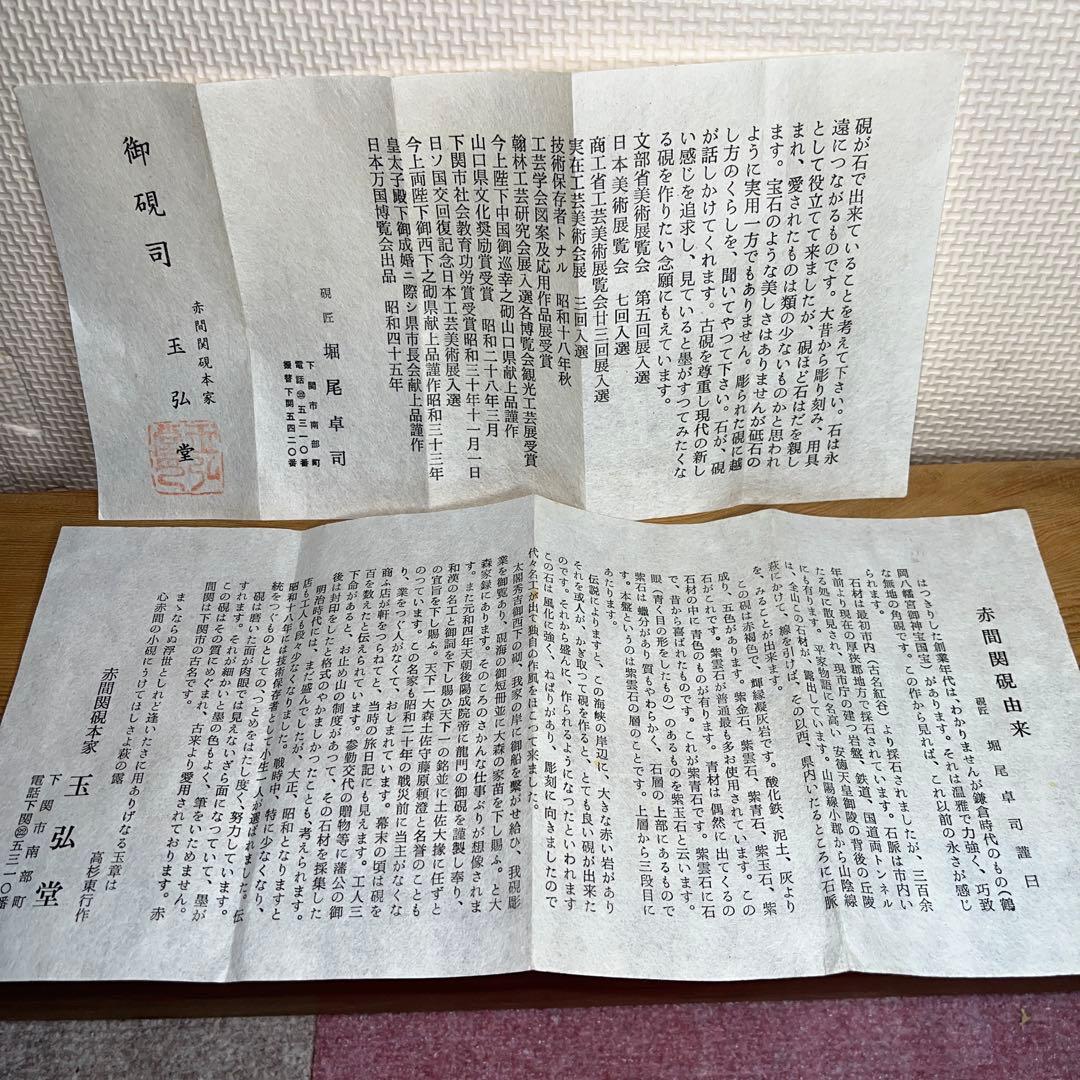 硯が石で出来ていることを考えて下さい。石は永
遠につながるものです。大昔から彫り刻み、用具
として役立てて来ましたが、硯ほど石はだを親し
まれ、愛されたものは類の少ないものかと思われ
ます。宝石のような美しさはありませんが砥石の
ように実用一方でもありません。彫られた硯に越
し方のくらしを、聞いてやつて下さい。石が、硯
が話しかけてくれます。古硯を尊重し現代の新し
い感じを追求し、見ていると墨がすつてみたくな
る硯を作りたい念願にもえています。
文部省美術展覧会 第五回展入選
日本美術展覧会 七回入選
商工省工芸美術展覧会廿三回展入選
実在工芸美術会展 三回入選
技術保存者トナル 昭和十八年秋
工芸学会図案及応用作品展受賞
翰林工芸研究会展入選各博覧会観光工芸展受賞
今上陛下中国御巡幸之砌山口県献上品謹作
山口県文化奨励賞受賞 昭和二十八年三月
下関市社会教育功労賞受賞昭和三十年十一月一日
日ソ国交回復記念日本工芸美術展入選
今上両陛下御西下之砌県献上品謹作昭和三十三年
皇太子殿下御成婚ニ際シ県市長会献上品謹作
日本万国博覧会出品 昭和四十五年
硯匠 堀尾卓司
下関市南部町
電話㉒五三一〇番
振替下関五四二〇番
赤間関硯本家
御硯司 玉弘堂
赤間関硯由来
硯匠 堀尾卓司謹曰
はつきりした創業年代はゝわかりませんが鎌倉時代のもの（鶴
岡八幡宮御神宝国宝）があります。それは温雅で力強く、巧致
な無地の角硯です。この作から見れば、これ以前の永さが感じ
られます。
石材は最初市内（古名紅谷）より採石されましたが、三百余
年前より現在の厚狭郡地方で採石されています。石脈は市内い
たる処に散見され、現市庁の建つ岩盤、鉄道、国道両トンネル
にも有ります。平家物語に名高い安徳天皇御陵の背後の丘陵
は、全山この石材が、露出しています。山陽線小郡から山陰線
萩にかけて、線を引けば、その以西、県内いたるところに石脈
を、みることが出来ます。
この硯は赤褐色で、輝緑凝灰岩です。酸化鉄、泥土、灰より
成り、五色があります。紫金石、紫雲石、紫青石、紫玉石、紫
石がこれです。紫雲石が普通最も多お使用されています。この
石材の中に青色のものが有ります。青材は偶然に出てくるの
で、昔から喜ばれたものです。これが紫青石です。紫雲石に石
眼（青く目の形をしたもの）のあるものを紫玉石と云います。
紫石は蠟分があり質もやわらかく、石層の上部にあるもので
す。本盤というのは紫雲石の層のことです。上層から三段目に
あたります。
伝説によりますと、この海峡の岸辺に、大きな赤い岩があり
それを或人が、かぎ取つて硯を作ると、とても良い硯が出来た
のです。それから盛んに、作られるようになつたといわれます
この石は風化に強く、ねばりがあり、彫刻に向きましたので
代々名工が出て独自の作風をほこつて来ました。
太閤秀吉御西下の砌、我家の岸に御船を繋がせ給ひ、我硯彫
業を御覧あり、硯海の御短冊並に大森の家苗を下し賜ふ。と大
森家録にあります。そのころのさかんな仕事ぶりが想像されま
す。また元和四年天朝後陽成院帝に龍門の御硯を謹製し奉り、
和漢の名工と御詞を下し賜ひ天下一の銘並に土佐大掾に任ずと
の宣旨を下し賜ふ。天下一大森土佐守藤原頼澄と名誉のことも
のつています。この名家も昭和二十年の戦災前に当主がなくな
り、業をつぐ人がなくて、おしまれています。幕末の頃は硯を
商ふ店が軒をつらねて、当時の旅日記にも見えます。工人三
百を数えたと伝えられています。参勤交代の贈物等に藩公の御
下命があると、お止め山の制度があつて、その石材を採集した
後は封印をしたと格式のやかましかつたことも、考えられます。
明治時代には、まだ盛んでしたが、大正、昭和となりますと
店も工人も段々少なくなりました。戦時中、特に少なくなり、
昭和十八年には技術保存者として小生一人が選ばれました。伝
統をつぐものとしての、つとめをはたし度く、努力しています。
硯は磨いた面が肉眼では見えないざら面になつていて、墨が
すれます。それが細かいと墨の色もよく、筆をいためません。
この硯はその質にめぐまれ、古来より愛用されております。赤
間関は下関市の古名です。
まゝならぬ浮世としれど逢いたさに用ありげなる玉章は
心赤間の小硯にうけてほしさよ萩の露
高杉東行作
赤間関硯本家 玉弘堂
下関市南部町
電話下関㉒五三一〇番